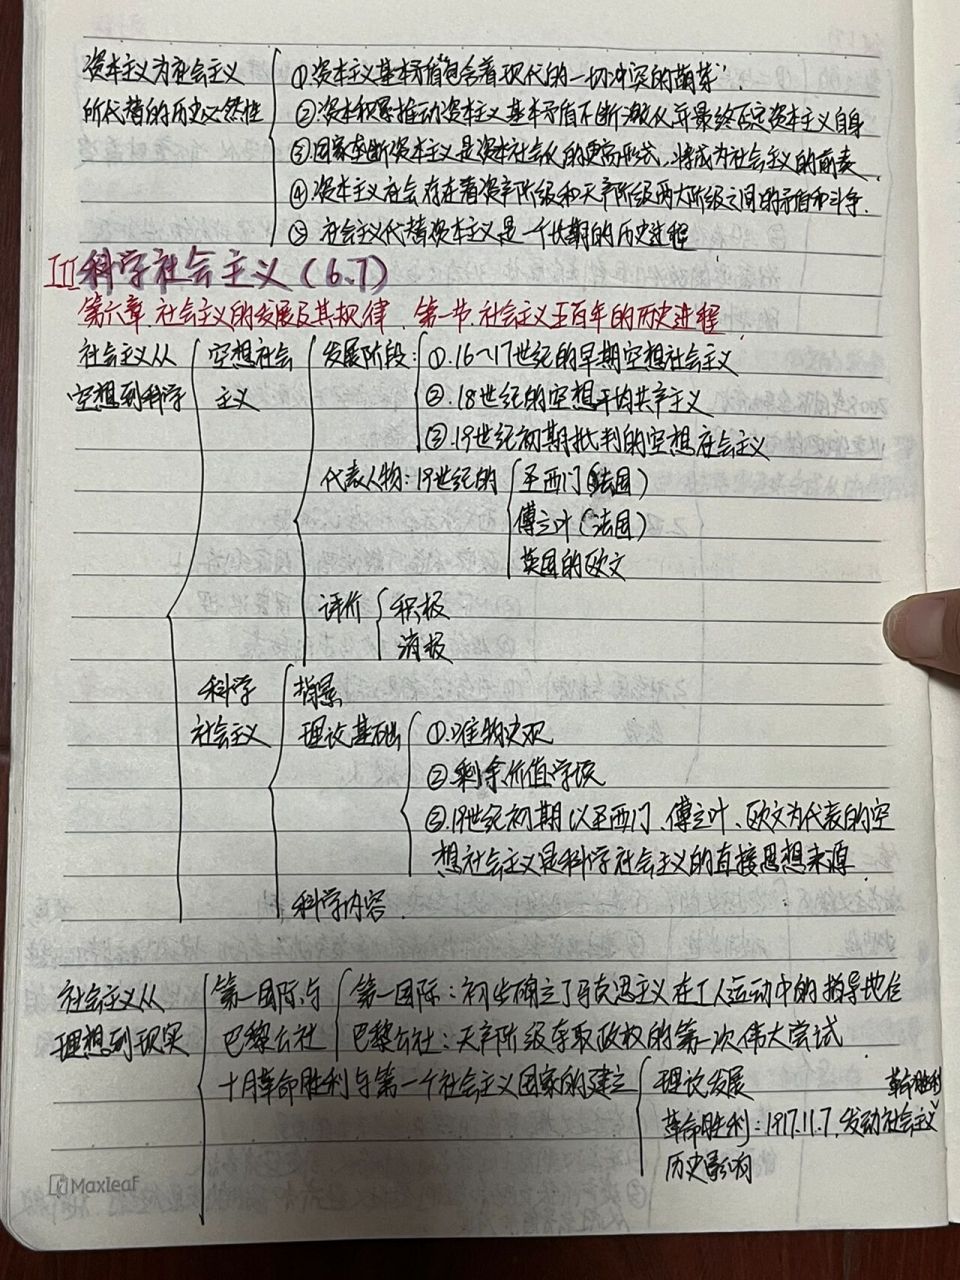 资本主义为社会主义
所代替的历史必然性
①.资本主义基本矛盾"包含着现代的一切冲突的萌芽".
②.资本积累推动资本主义基本矛盾不断激化并最终否定资本主义自身
③.国家垄断资本主义是资本社会化的更高形式,将成为社会主义的前奏.
④.资本主义社会存在着资产阶级和无产阶级两大阶级之间的矛盾和斗争.
⑤ 社会主义代替资本主义是一个长期的历史进程
III 科学社会主义(6.7)
第六章.社会主义的发展及其规律.第一节.社会主义五百年的历史进程
社会主义从
空想到科学
空想社会
主义
发展阶段:①.16~17世纪的早期空想社会主义
②.18世纪的空想平均共产主义
③.19世纪初期批判的空想社会主义
代表人物:19世纪的
圣西门(法国)
傅立叶(法国)
英国的欧文
评价
积极
消极
科学
社会主义
背景
理论基础
①.唯物史观
②.剩余价值学说
③.19世纪初期以圣西门、傅立叶、欧文为代表的空
想社会主义是科学社会主义的直接思想来源.
科学内容.
社会主义从
理想到现实
第一国际与
巴黎公社
第一国际:初步确立了马克思主义在工人运动中的指导地位
巴黎公社:无产阶级夺取政权的第一次伟大尝试
十月革命胜利与第一个社会主义国家的建立
理论发展
革命胜利:1917.11.7,发动社会主义
革命胜利
历史影响
Maxleaf